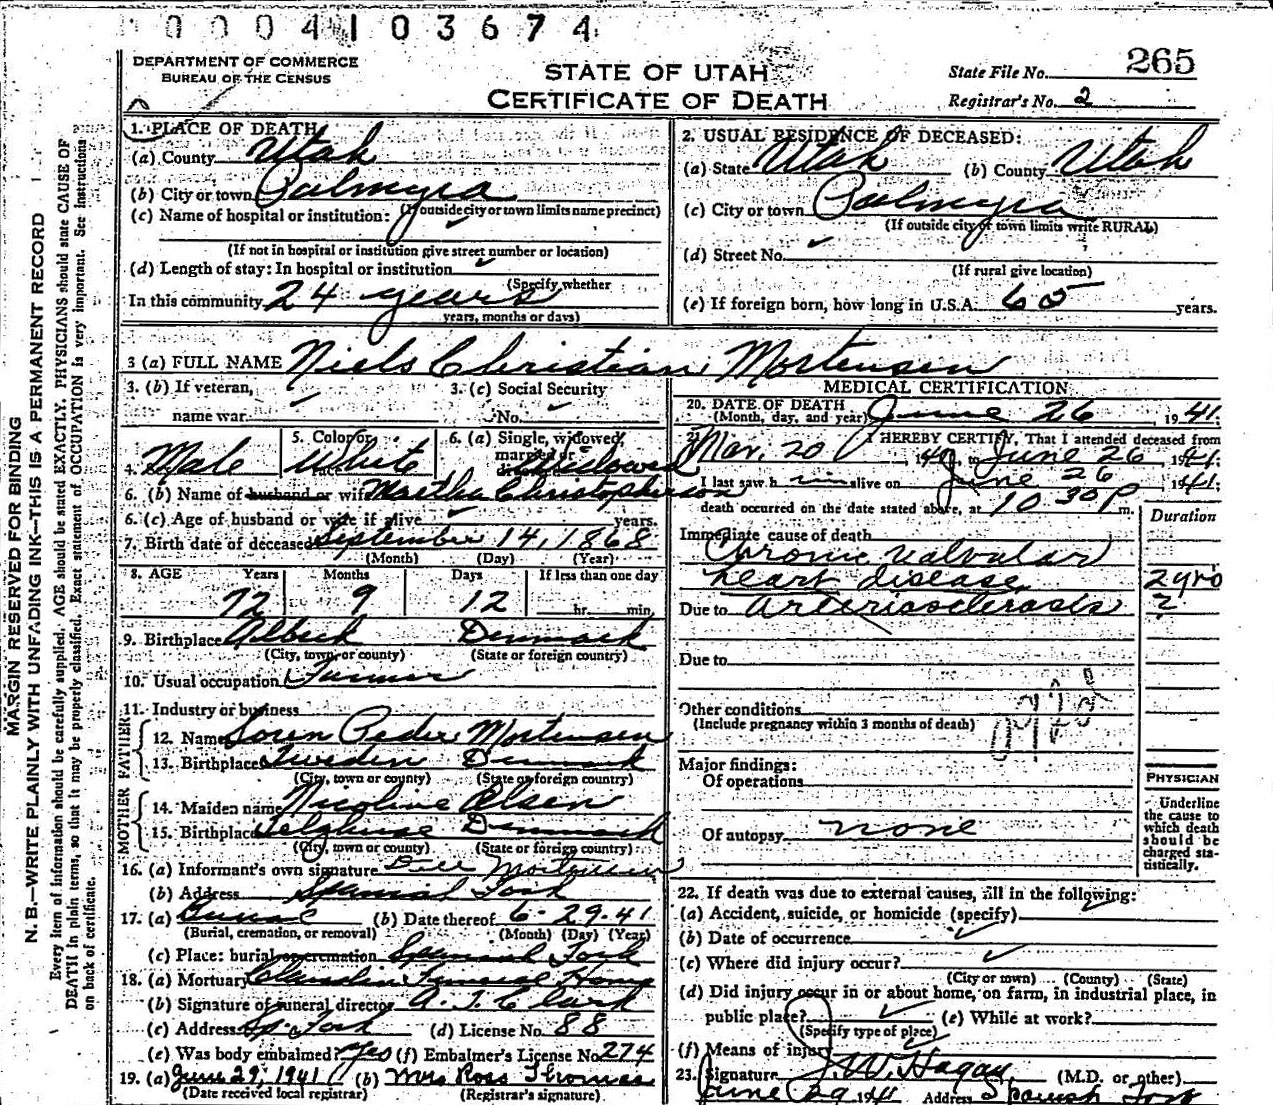 0004103674
DEPARTMENT OF COMMERCE
BUREAU OF THE CENSUS
STATE OF UTAH
CERTIFICATE OF DEATH
State File No. 265
Registrar's No. 2
MARGIN RESERVED FOR BINDING
N. B.—WRITE PLAINLY WITH UNFADING INK—THIS IS A PERMANENT RECORD
Every item of information should be carefully supplied. AGE should be stated EXACTLY. PHYSICIANS should state CAUSE OF
DEATH in plain terms, so that it may be properly classified. Exact statement of OCCUPATION is very important. See instructions
on back of certificate.
1. PLACE OF DEATH
(a) County Utah
(b) City or town Palmyra
(If outside city or town limits name precinct)
(c) Name of hospital or institution:
(If not in hospital or institution give street number or location)
(d) Length of stay: In hospital or institution
(Specify whether
In this community 24 years
years, months or days)
2. USUAL RESIDENCE OF DECEASED:
(a) State Utah (b) County Utah
(c) City or town Palmyra
(If outside city or town limits write RURAL)
(d) Street No.
(If rural give location)
(e) If foreign born, how long in U.S.A. 65 years.
3 (a) FULL NAME Niels Christian Mortensen
3. (b) If veteran, name war
3. (c) Social Security No.
4. Male
5. Color or White
6. (a) Single, widowed, married or Widowed
6. (b) Name of husband or wife Martha Christopherson
6. (c) Age of husband or wife if alive years.
7. Birth date of deceased September 14, 1868
(Month) (Day) (Year)
8. AGE Years Months Days If less than one day
72 9 12 hr. min.
9. Birthplace Albeck Denmark
(City, town, or county) (State or foreign country)
10. Usual occupation Farmer
11. Industry or business
FATHER
12. Name Soren Peder Mortensen
13. Birthplace Denmark
(City, town or county) (State or foreign country)
MOTHER
14. Maiden name Nicoline Olsen
15. Birthplace Denmark
(City, town or county) (State or foreign country)
16. (a) Informant's own signature Mortensen
(b) Address Spanish Fork
17. (a) Burial (b) Date thereof 6-29-41
(Burial, cremation, or removal) (Month) (Day) (Year)
(c) Place: burial or cremation Spanish Fork
18. (a) Mortuary Funeral Home
(b) Signature of funeral director A. J. Clark
(c) Address Sp. Fork (d) License No. 88
(e) Was body embalmed? Yes (f) Embalmer's License No. 274
19. (a) June 29, 1941 (b) Mrs Ross Thomas
(Date received local registrar) (Registrar's signature)
MEDICAL CERTIFICATION
20. DATE OF DEATH
(Month, day, and year) June 26 1941
21. I HEREBY CERTIFY, That I attended deceased from
Mar. 20, 1940, to June 26 1941;
I last saw him alive on June 26 1941;
death occurred on the date stated above, at 10 30 P m.
Duration
Immediate cause of death
Chronic valvular
heart disease 2 yrs
Due to arteriosclerosis ?
Due to
Other conditions
(Include pregnancy within 3 months of death)
Major findings:
Of operations
Of autopsy none
PHYSICIAN
Underline
the cause to
which death
should be
charged sta-
tistically.
22. If death was due to external causes, fill in the following:
(a) Accident, suicide, or homicide (specify)
(b) Date of occurrence
(c) Where did injury occur?
(City or town) (County) (State)
(d) Did injury occur in or about home, on farm, in industrial place, in
public place? (e) While at work?
(Specify type of place)
(f) Means of injury
23. Signature J. W. Hagan (M.D. or other)
June 29 1941 Address Spanish Fork